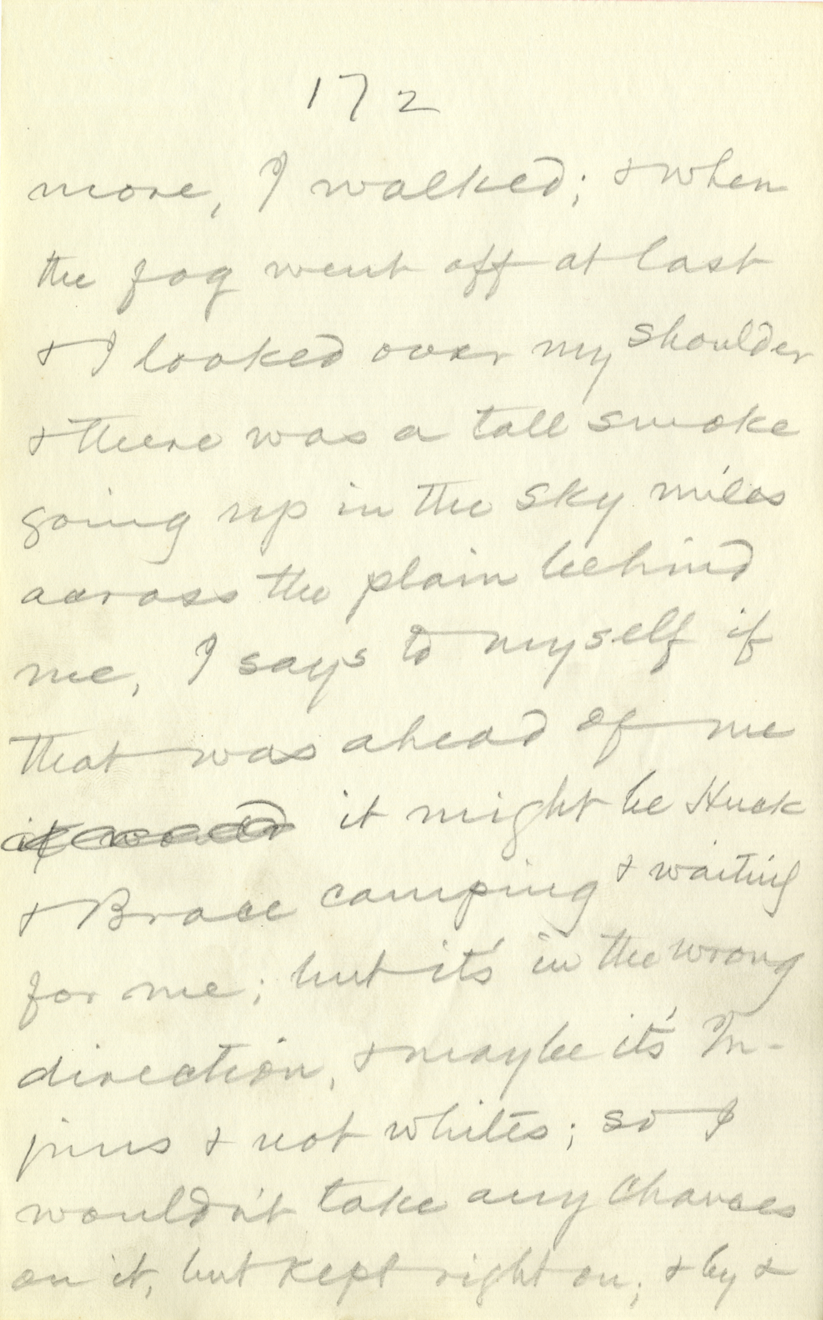 172
more, I walked; & when
the fog went off at last
& I looked over my shoulder
& there was a tall smoke
going up in the sky miles
across the plain behind
me, I says to myself if
that was ahead of me
it might be Huck
& Brace camping & waiting
for me; but it's in the wrong
direction, & maybe it's In-
juns & not whites; so I
wouldn't take any chances
on it, but kept right on; & by &